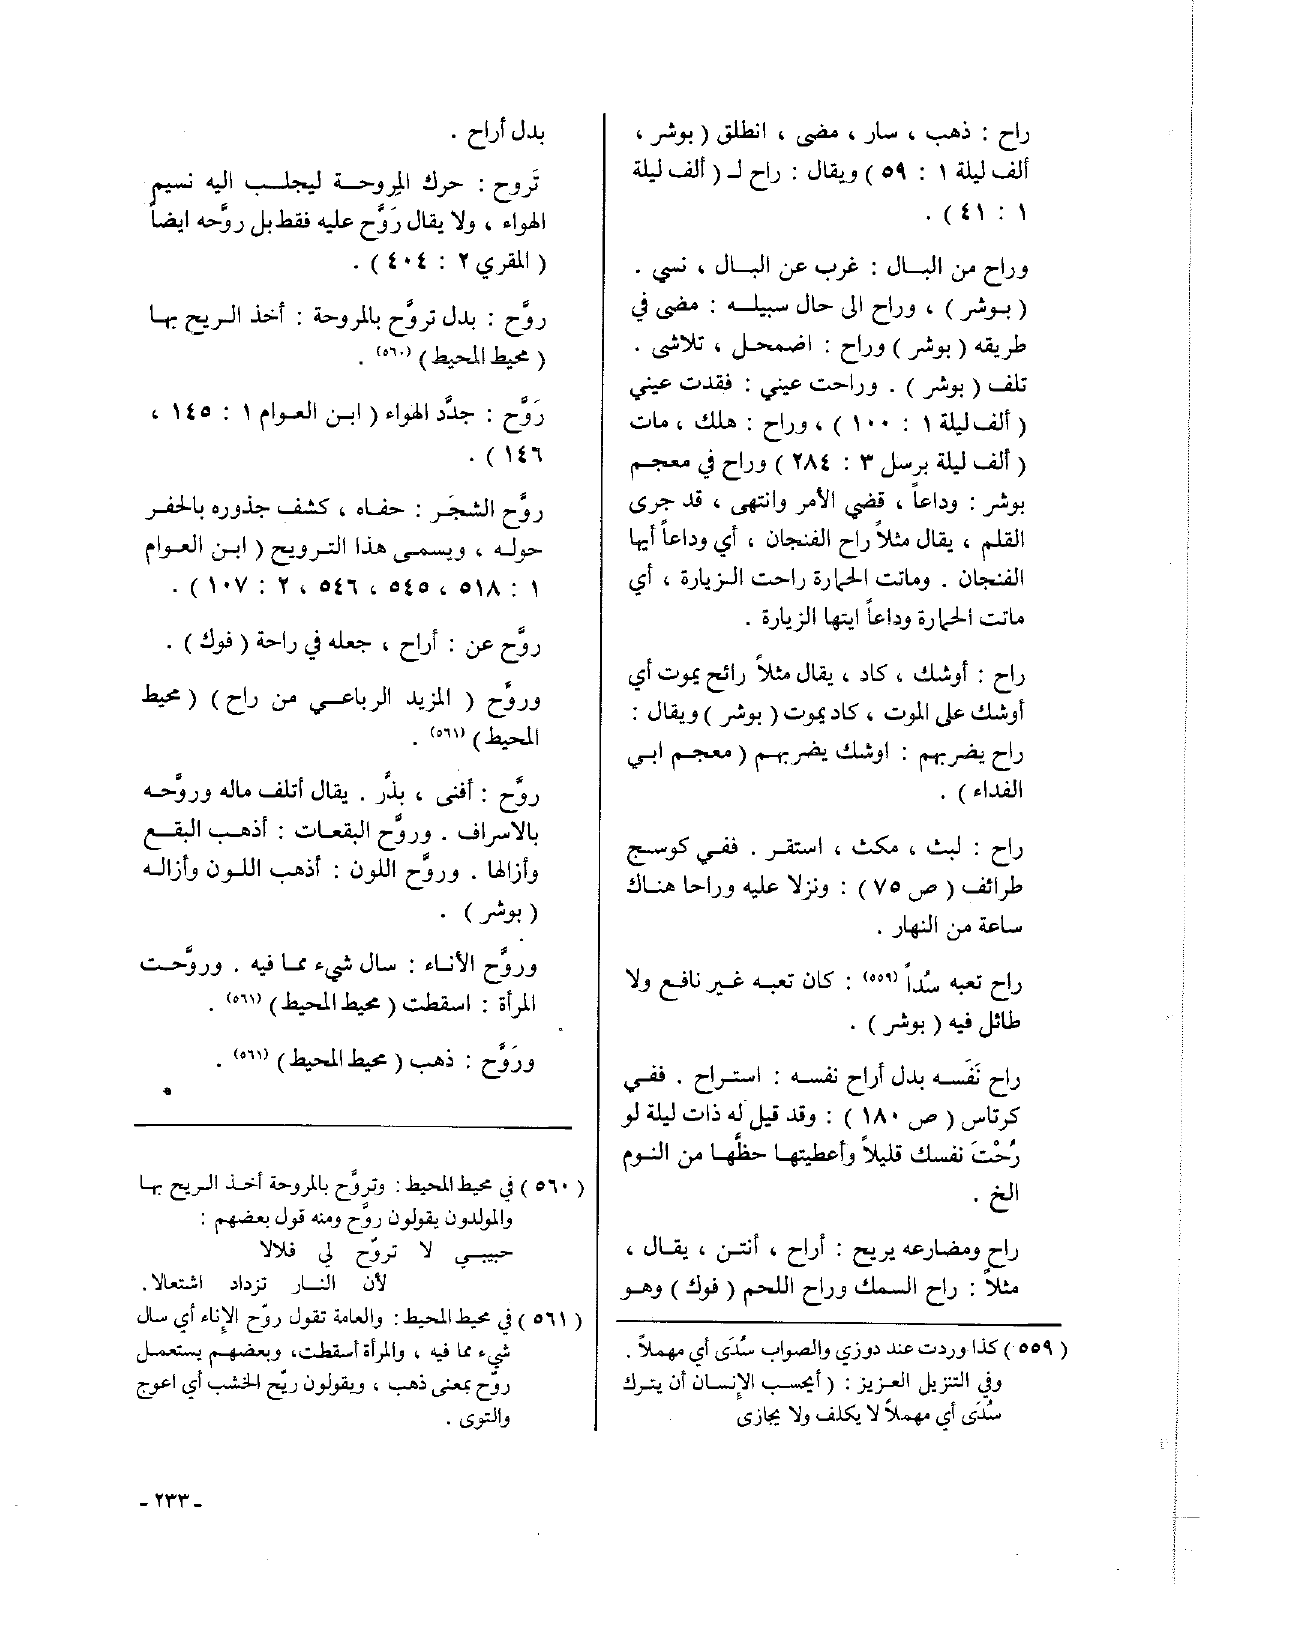 راح : ذهب ، سار ، مضى ، انطلق ( بوشر ،
ألف ليلة ١ : ٥٩ ) ويقال : راح لـ ( ألف ليلة
١ : ٤١ ) .
وراح من البال : غرب عن البال ، نسي .
( بوشر ) ، وراح الى حال سبيله : مضى في
طريقه ( بوشر ) وراح : اضمحل ، تلاشى .
تلف ( بوشر ) . وراحت عيني : فقدت عيني
( ألف ليلة ١ : ١٠٠ ) ، وراح : هلك ، مات
( ألف ليلة برسل ٣ : ٢٨٤ ) وراح في معجم
بوشر : وداعاً ، قضي الأمر وانتهى ، قد جرى
القلم ، يقال مثلاً راح الفنجان ، أي وداعاً أيها
الفنجان . وماتت الحمارة راحت الزيارة ، أي
ماتت الحمارة وداعاً ايتها الزيارة .
راح : أوشك ، كاد ، يقال مثلاً رائح يموت أي
أوشك على الموت ، كاد يموت ( بوشر ) ويقال :
راح يضربهم : اوشك يضربهم ( معجم ابي
الفداء ) .
راح : لبث ، مكث ، استقر . ففي كوسج
طرائف ( ص ٧٥ ) : ونزلا عليه وراحا هناك
ساعة من النهار .
راح تعبه سُدأً (٥٥٩) : كان تعبه غير نافع ولا
طائل فيه ( بوشر ) .
راح نَفَسه بدل أراح نفسه : استراح . ففي
كرتاس ( ص ١٨٠ ) : وقد قيل له ذات ليلة لو
رُحْتَ نفسك قليلاً وأعطيتها حظَّها من النوم
الخ .
راح ومضارعه يريح : أراح ، أنتن ، يقال ،
مثلاً : راح السمك وراح اللحم ( فوك ) وهو
( ٥٥٩ ) كذا وردت عند دوزي والصواب سُدًى أي مهملاً .
وفي التنزيل العزيز : ( أيحسب الإنسان أن يترك
سُدًى أي مهملاً لا يكلف ولا يجازى
بدل أراح .
تَروح : حرك المروحة ليجلب اليه نسيم
الهواء ، ولا يقال رَوَّح عليه فقط بل روَّحه ايضاً
( المقري ٢ : ٤٠٤ ) .
روَّح : بدل تروَّح بالمروحة : أخذ الريح بها
( محيط المحيط ) (٥٦٠) .
رَوَّح : جدَّد الهواء ( ابن العوام ١ : ١٤٥ ،
١٤٦ ) .
روَّح الشجَر : حفاه ، كشف جذوره بالحفر
حوله ، ويسمى هذا الترويح ( ابن العوام
١ : ٥١٨ ، ٥٤٥ ، ٥٤٦ ، ٢ : ١٠٧ ) .
روَّح عن : أراح ، جعله في راحة ( فوك ) .
وروَّح ( المزيد الرباعي من راح ) ( محيط
المحيط ) (٥٦١) .
روَّح : أفنى ، بذَّر . يقال أتلف ماله وروَّحه
بالاسراف . وروَّح البقعات : أذهب البقع
وأزالها . وروَّح اللون : أذهب اللون وأزاله
( بوشر ) .
وروَّح الأناء : سال شيء مما فيه . وروَّحت
المرأة : اسقطت ( محيط المحيط ) (٥٦١) .
ورَوَّح : ذهب ( محيط المحيط ) (٥٦١) .
( ٥٦٠ ) في محيط المحيط : وتروَّح بالمروحة أخذ الريح بها
والمولدون يقولون روَّح ومنه قول بعضهم :
حبيبي لا تروّح لي فلالا
لأن النار تزداد اشتعالا.
( ٥٦١ ) في محيط المحيط : والعامة تقول روّح الإناء أي سال
شيء مما فيه ، والمرأة أسقطت، وبعضهم يستعمل
روّح بمعنى ذهب ، ويقولون ريّح الخشب أي اعوج
والتوى .
ـ ٢٣٣ ـ